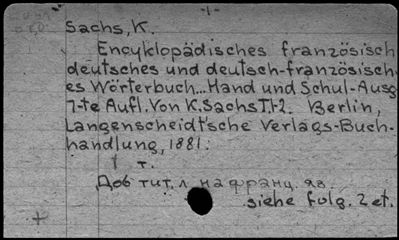 Sachs, K.
Encyklopädisches französisch
deutsches und deutsch-französisch-
es Wörterbuch... Hand und Schul-Ausg
7-te Aufl. Von K. Sachs T.1-2. Berlin,
Langenscheidt'sche Verlags-Buch-
handlung, 1881.
1 т.
Доб тит. л. на франц. яз.
siehe folg. Zet.